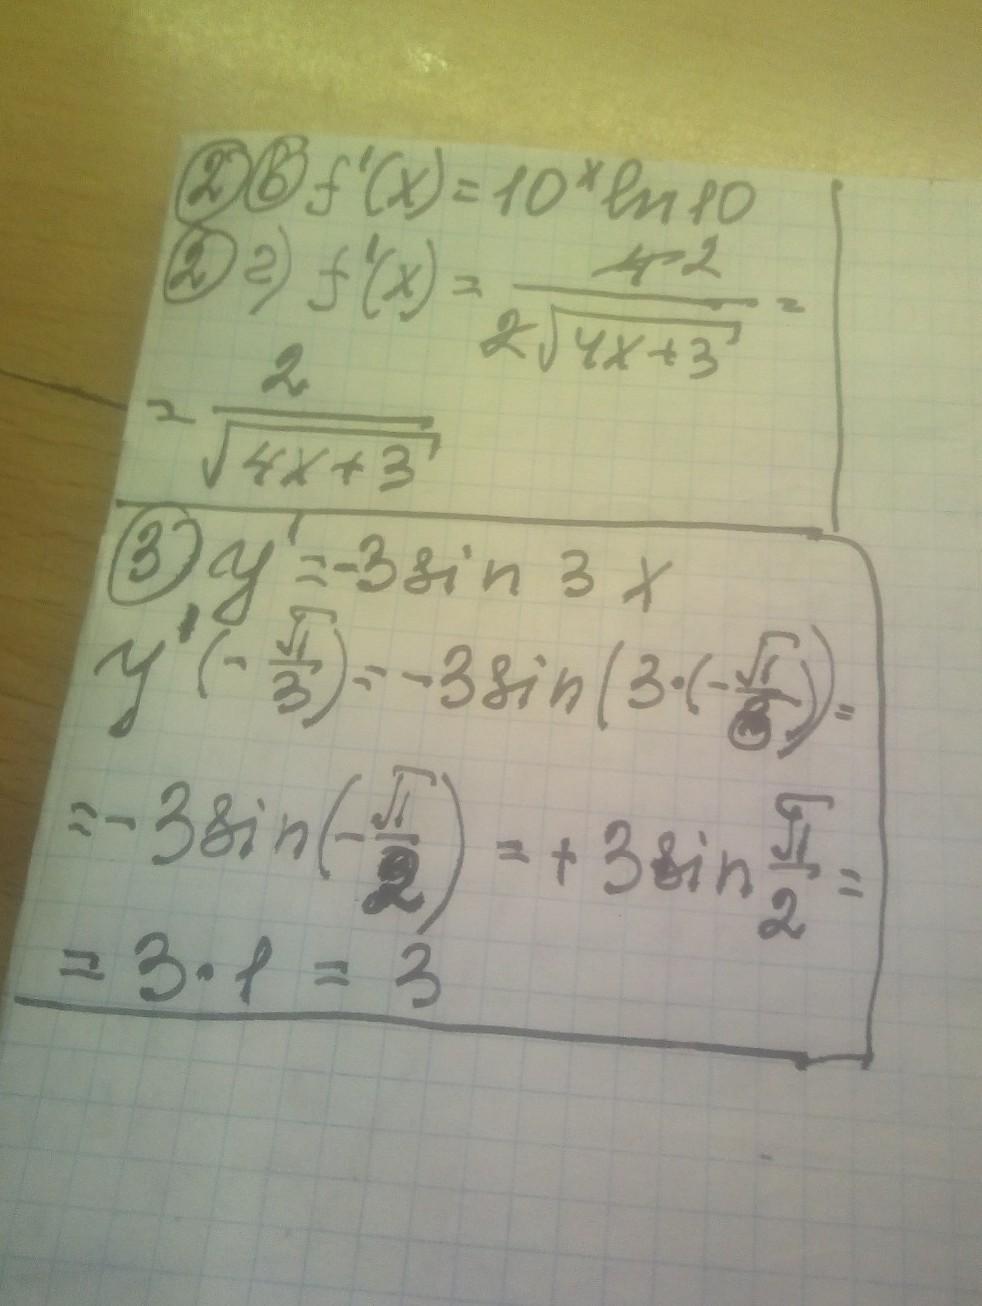 ② в) f'(x) = 10ˣ ln 10
② г) f'(x) = 4 2 / 2√(4x+3) =
= 2 / √(4x+3)
③ y' = -3 sin 3 x
y'(-π/3) = -3 sin(3·(-π/)) =
= -3 sin(-π/2) = +3 sin π/2 =
= 3·1 = 3